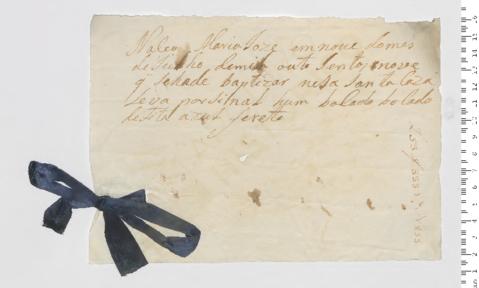 Naceo Maria Joze em nove do mes
de Junho, de mil outo sentos, nove
q̃ se hade baptizar nesa Santa Caza
Leva por sinal hum bolado do lado
de fita azul ferrete